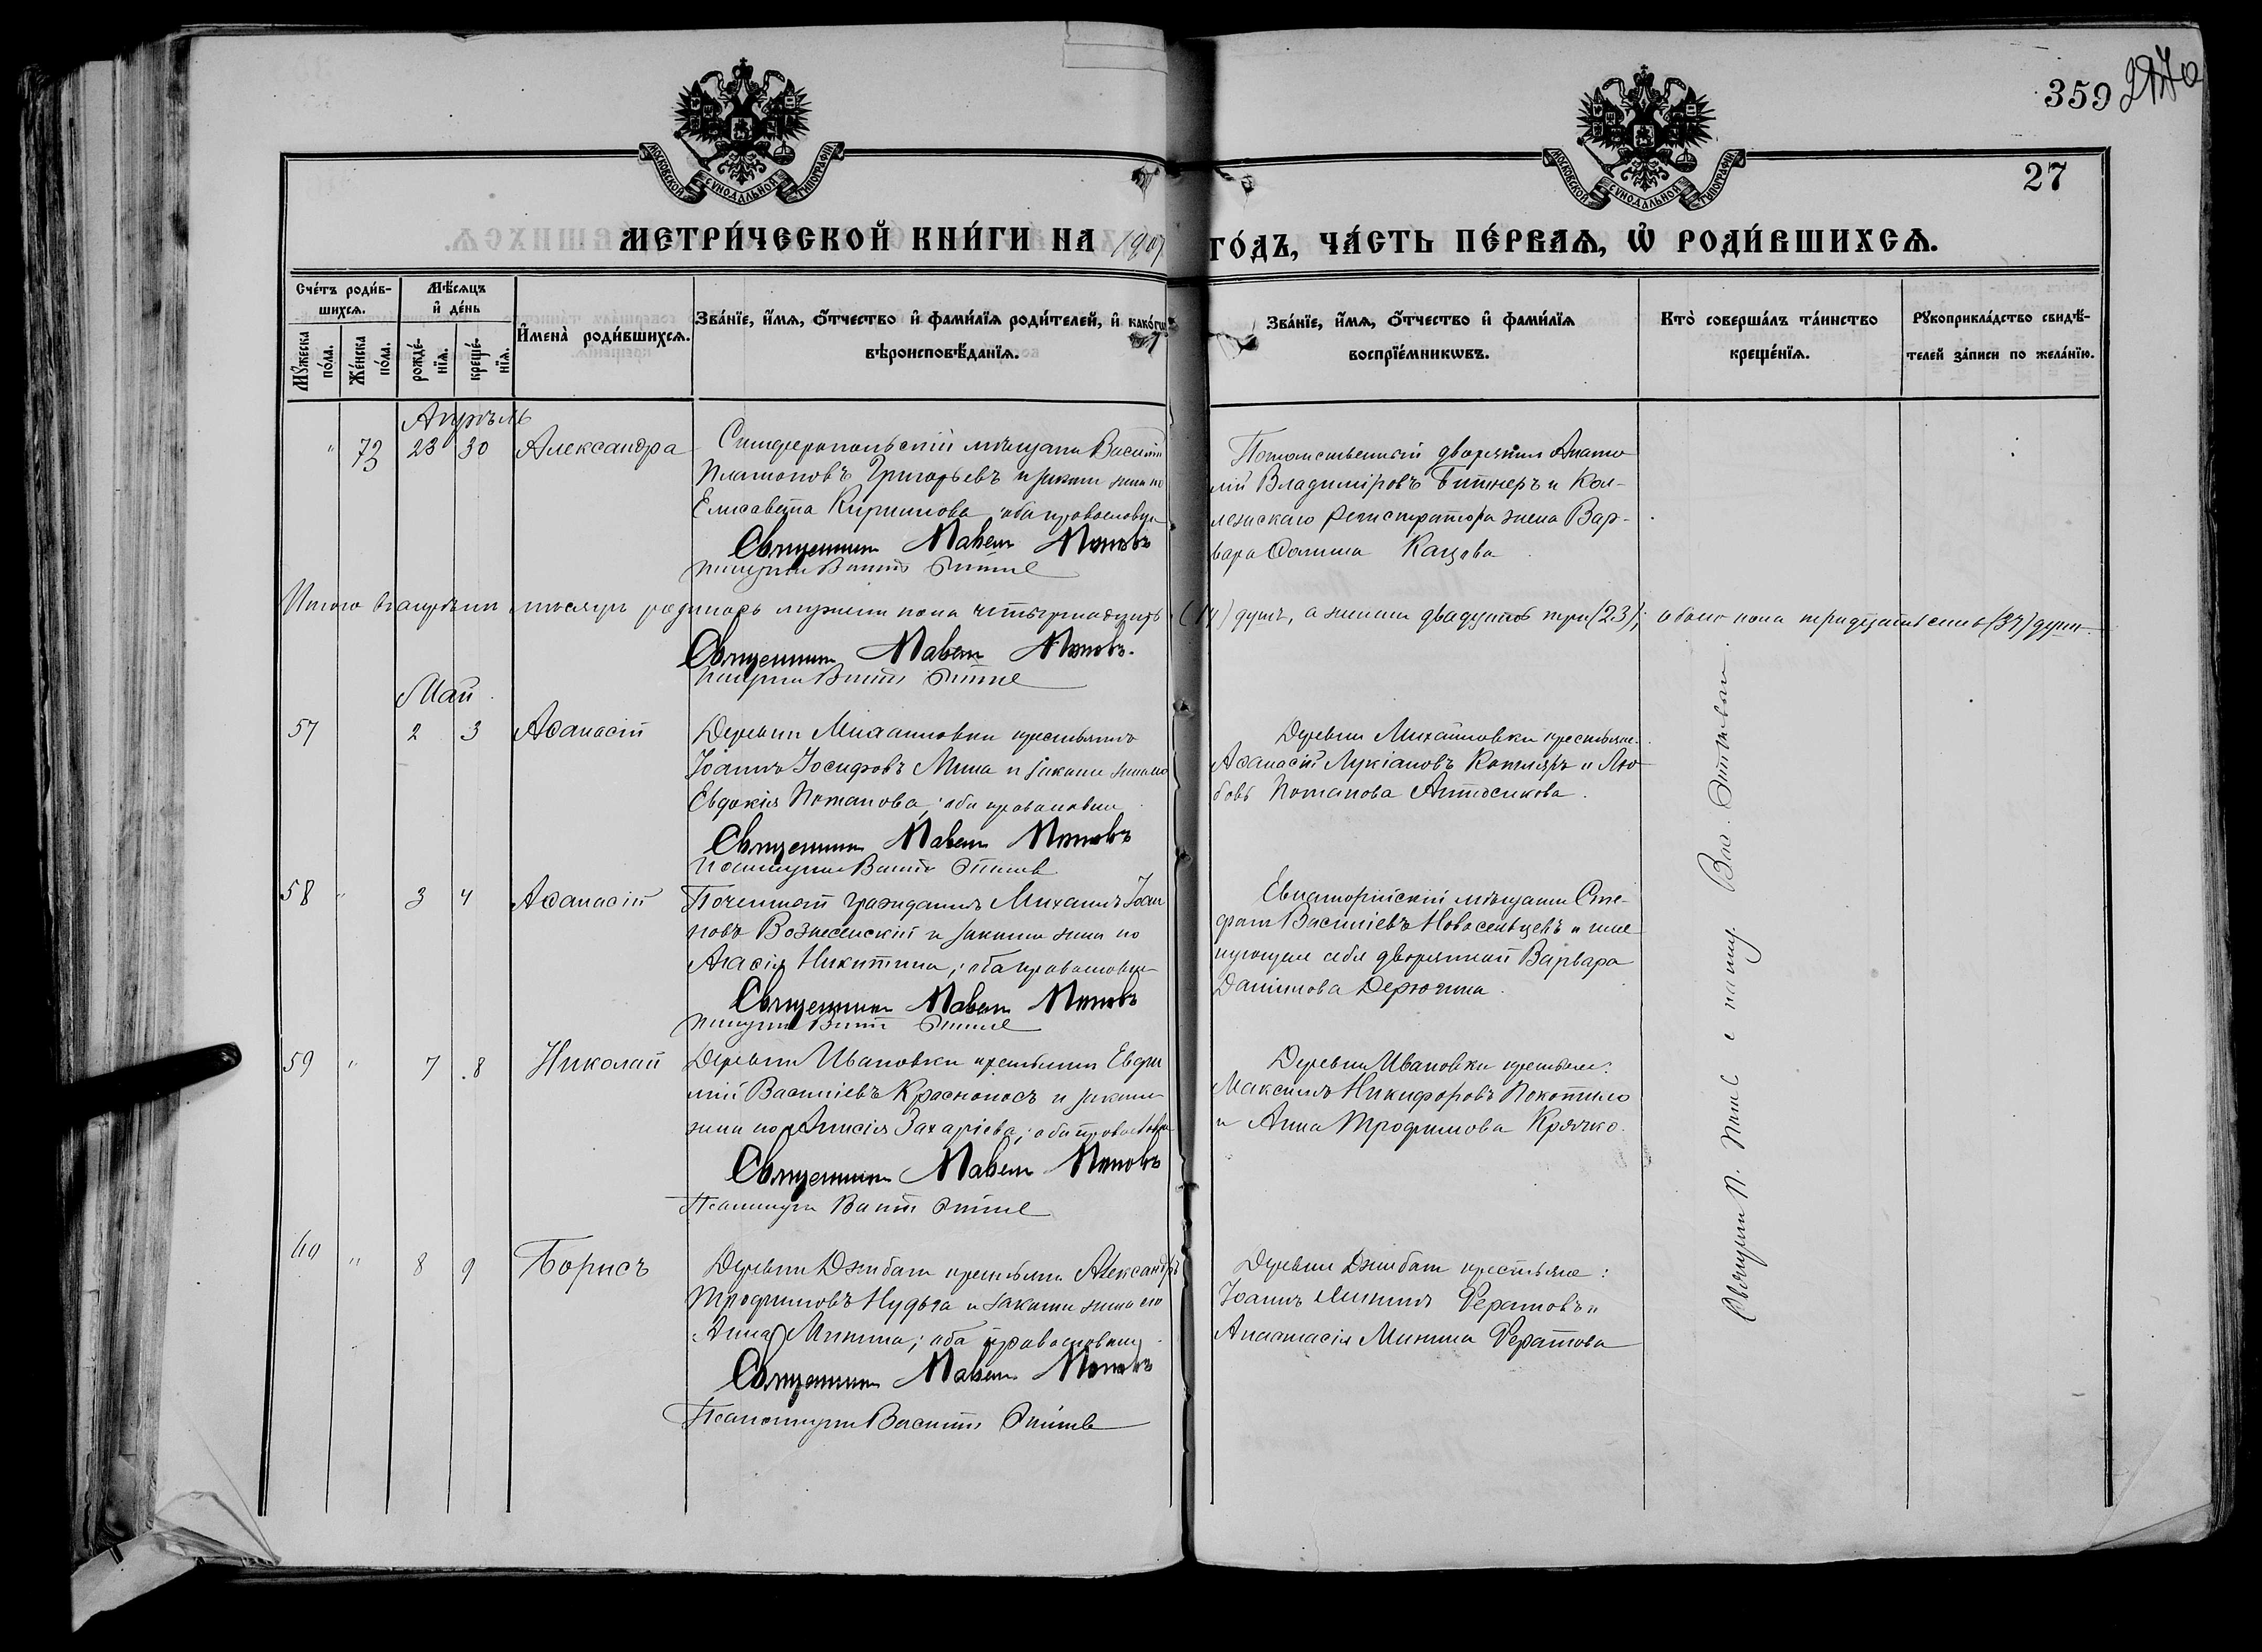 359 270
27
МОСКОВСКОЙ СѴНОДАЛЬНОЙ ТИПОГРАФІИ
МОСКОВСКОЙ СѴНОДАЛЬНОЙ ТИПОГРАФІИ
МЕТРИ́ЧЕСКОЙ КНИ́ГИ НА 1907 ГО́ДЪ, ЧА́СТЬ ПЕ́РВАѦ, Ѡ҆ РОДИ́ВШИХСѦ.
Сче́тъ роди́в-
шихсѧ.
Мꙋжеска по́ла.
Же́нска по́ла.
Мѣ́сѧцъ и҆ де́нь
рожде́-нїѧ.
креще́-нїѧ.
И҆мена̀ роди́вшихсѧ.
Зва́нїе, и҆́мѧ, ѻ҆́тчество и҆ фами́лїѧ роди́телей, и҆ како́гѡ
вѣроисповѣ́данїѧ.
Зва́нїе, и҆́мѧ, ѻ҆́тчество и҆ фами́лїѧ
воспрїе́мникѡвъ.
Кто̀ соверша́лъ та́инство
креще́нїѧ.
Рꙋкоприкла́дство свидѣ́-
телей за́писи по жела́нїю.
Апрѣль
" 73 23 30 Александра
Симферопольскій мѣщанинъ Василій
Платоновъ Григорьевъ и законн жена его
Елисавета Кирилова, оба православн
Священник Павел Попов
Псаломщик Василій
Потомственный дворянинъ Анато
лій Владиміровъ Битнеръ и Кол-
лежскаго Регистратора жена Вар-
вара Кацова
Итого въ апрѣлѣ мѣсяцѣ родилось мужеска пола четырнадцать (14) душъ, а женска двадцать три (23); обоего пола тридцать семь (37) душъ.
Священник Павел Попов.
Псаломщик Василій
Май
57 2 3 Аѳанасій
Деревни Михайловки крестьянинъ
Іоаннъ Іосифовъ Мина и законн жена его
Евдокія Потапова; оба православн
Священник Павел Попов
Псаломщик Василій
Деревни Михайловки крестьяне:
Аѳанасій Лукіановъ Котляръ и Лю
бовь Потапова
58 " 3 4 Аѳанасій
Почетный гражданинъ Михаилъ Іоан
новъ Вознесенскій и законн жена его
Агаѳія Никитина; оба православн
Священник Павел Попов
Псаломщик Василій
Евпаторійскій мѣщанинъ Сте-
фанъ Василіевъ Новосельцевъ и име
нующая себя дворянкой Варвара
Даніилова Дерюгина.
59 " 7 8 Николай
Деревни Ивановки крестьянинъ Евфи
мій Василіевъ Красноносъ и законн
жена его Анисія Захаріева; оба православн
Священник Павел Попов
Псаломщик Василій
Деревни Ивановки крестьяне:
Максимъ Никифоровъ Покотило
и Анна Трофимова Крячко.
60 " 8 9 Борисъ
Деревни Джабаги крестьянинъ Александръ
Трофимовъ Нудьга и законн жена его
Анна Минина; оба православны
Священник Павел Попов
Псаломщик Василій
Деревни Джабаги крестьяне:
Іоаннъ Мининъ Фератовъ и
Анастасія Минина Фератова
Священник П. Попов с псаломщ. Вас.